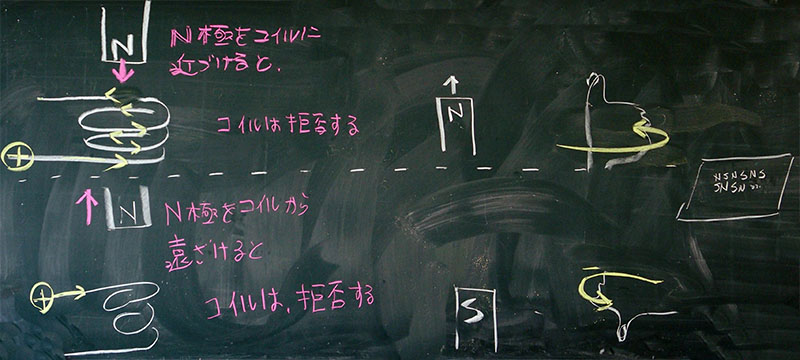 N
N極をコイルに
近づけると、
コイルは拒否する
N
N
N極をコイルから
遠ざけると
コイルは、拒否する
S
NSNSNS
SNSN